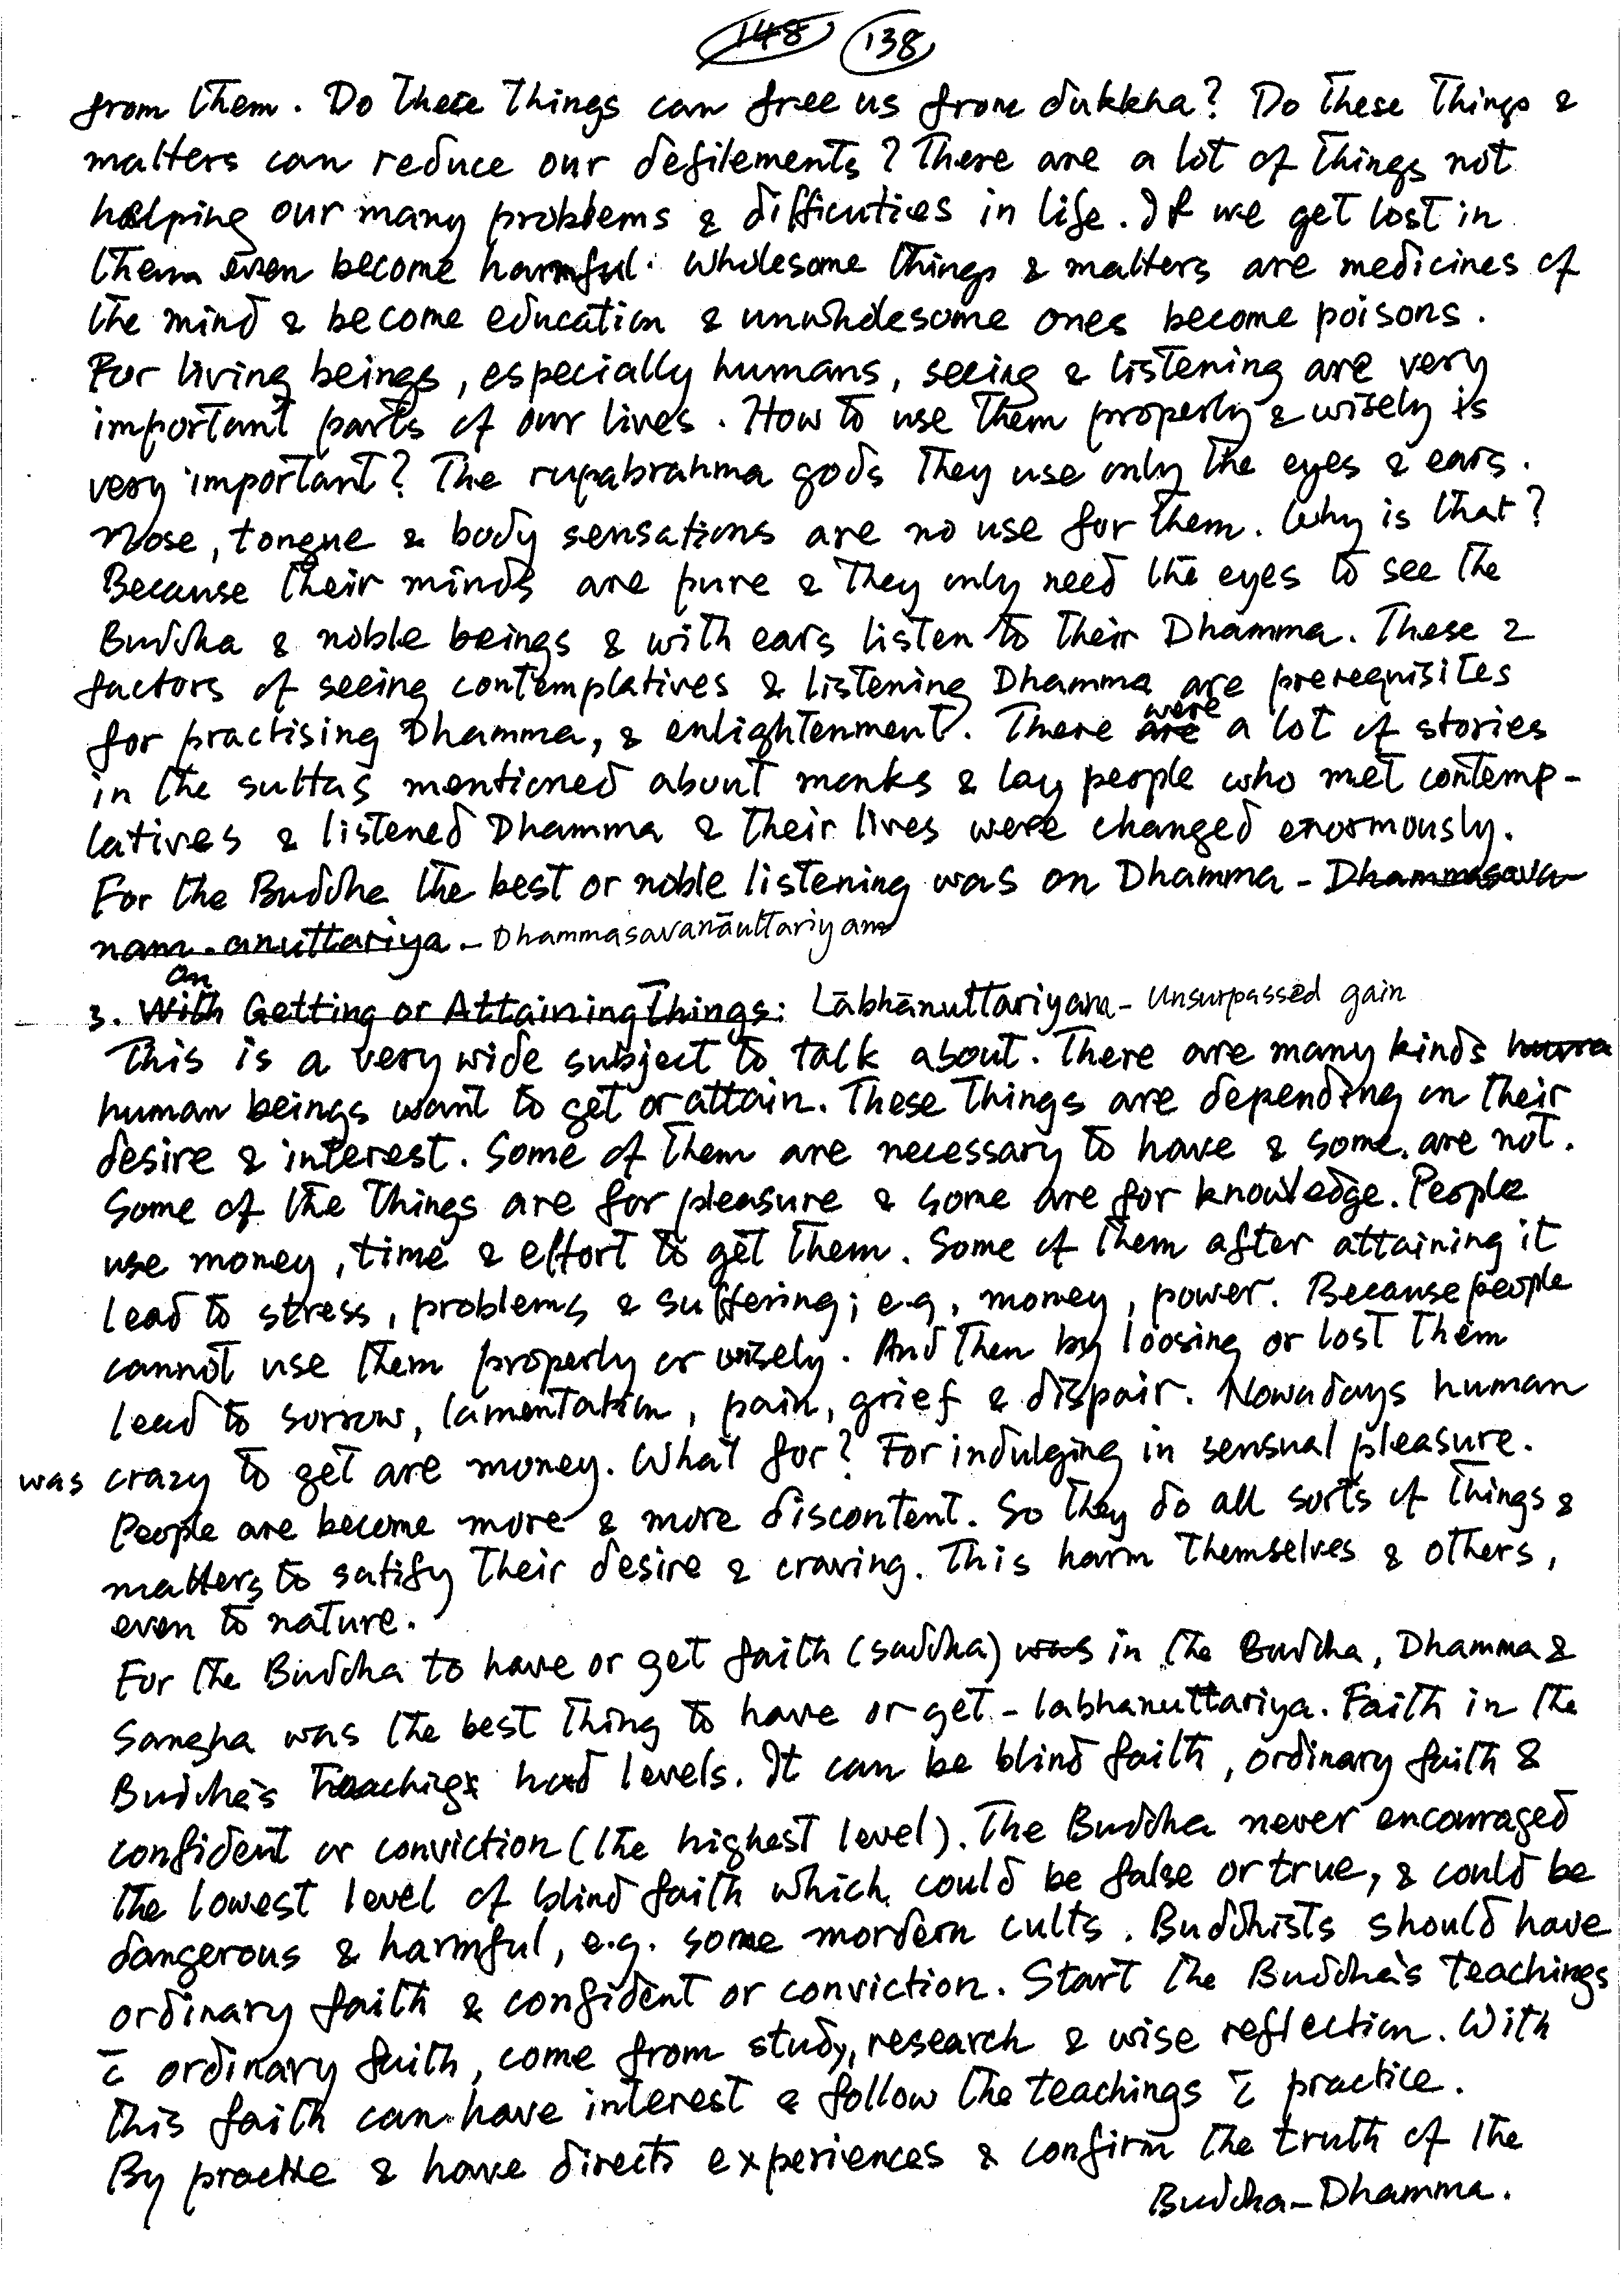 148 138
from them. Do these things can free us from dukkha? Do these things &
matters can reduce our defilements? There are a lot of things not
helping our many problems & difficuties in life. If we get lost in
them even become harmful. Wholesome things & matters are medicines of
the mind & become education & unwholesome ones become poisons.
For living beings, especially humans, seeing & listening are very
important parts of our lives. How to use them properly & wisely is
very important? The rupabrahma gods they use only the eyes & ears.
Nose, tongue & body sensations are no use for them. Why is that?
Because their minds are pure & they only need the eyes to see the
Buddha & noble beings & with ears listen to their Dhamma. These 2
factors of seeing contemplatives & listening Dhamma are prerequisites
for practising Dhamma, & enlightenment. There are were a lot of stories
in the suttas mentioned about monks & lay people who met contemp-
latives & listened Dhamma & their lives were changed enormously.
For the Buddha the best or noble listening was on Dhamma - Dhammasava-
nam-anuttariya - Dhammasavanāuttariyam
On
3. With Getting or Attaining Things: Lābhānuttariyam - Unsurpassed gain
This is a very wide subject to talk about. There are many kinds huma
human beings want to get or attain. These things are depending on their
desire & interest. Some of them are necessary to have & some are not.
Some of the things are for pleasure & some are for knowledge. People
use money, time & effort to get them. Some of them after attaining it
lead to stress, problems & suffering; e.g, money, power. Because people
cannot use them properly or wisely. And then by loosing or lost them
lead to sorrow, lamentation, pain, grief & dispair. Nowadays human
was crazy to get are money. What for? For indulging in sensual pleasure.
People are become more & more discontent. So they do all sorts of things &
matters to satify their desire & craving. This harm themselves & others,
even to nature.
For the Buddha to have or get faith (saddha) was in the Buddha, Dhamma &
Sangha was the best thing to have or get - labhanuttariya. Faith in the
Buddha's Teachings had levels. It can be blind faith, ordinary faith &
confident or conviction (the highest level). The Buddha never encouraged
the lowest level of blind faith which could be false or true, & could be
dangerous & harmful, e.g. some mordern cults. Buddhists should have
ordinary faith & confident or conviction. Start the Buddha's teachings
c̄ ordinary faith, come from study, research & wise reflection. With
this faith can have interest & follow the teachings c̄ practice.
By practie & have directs experiences & confirm the truth of the
Buddha-Dhamma.